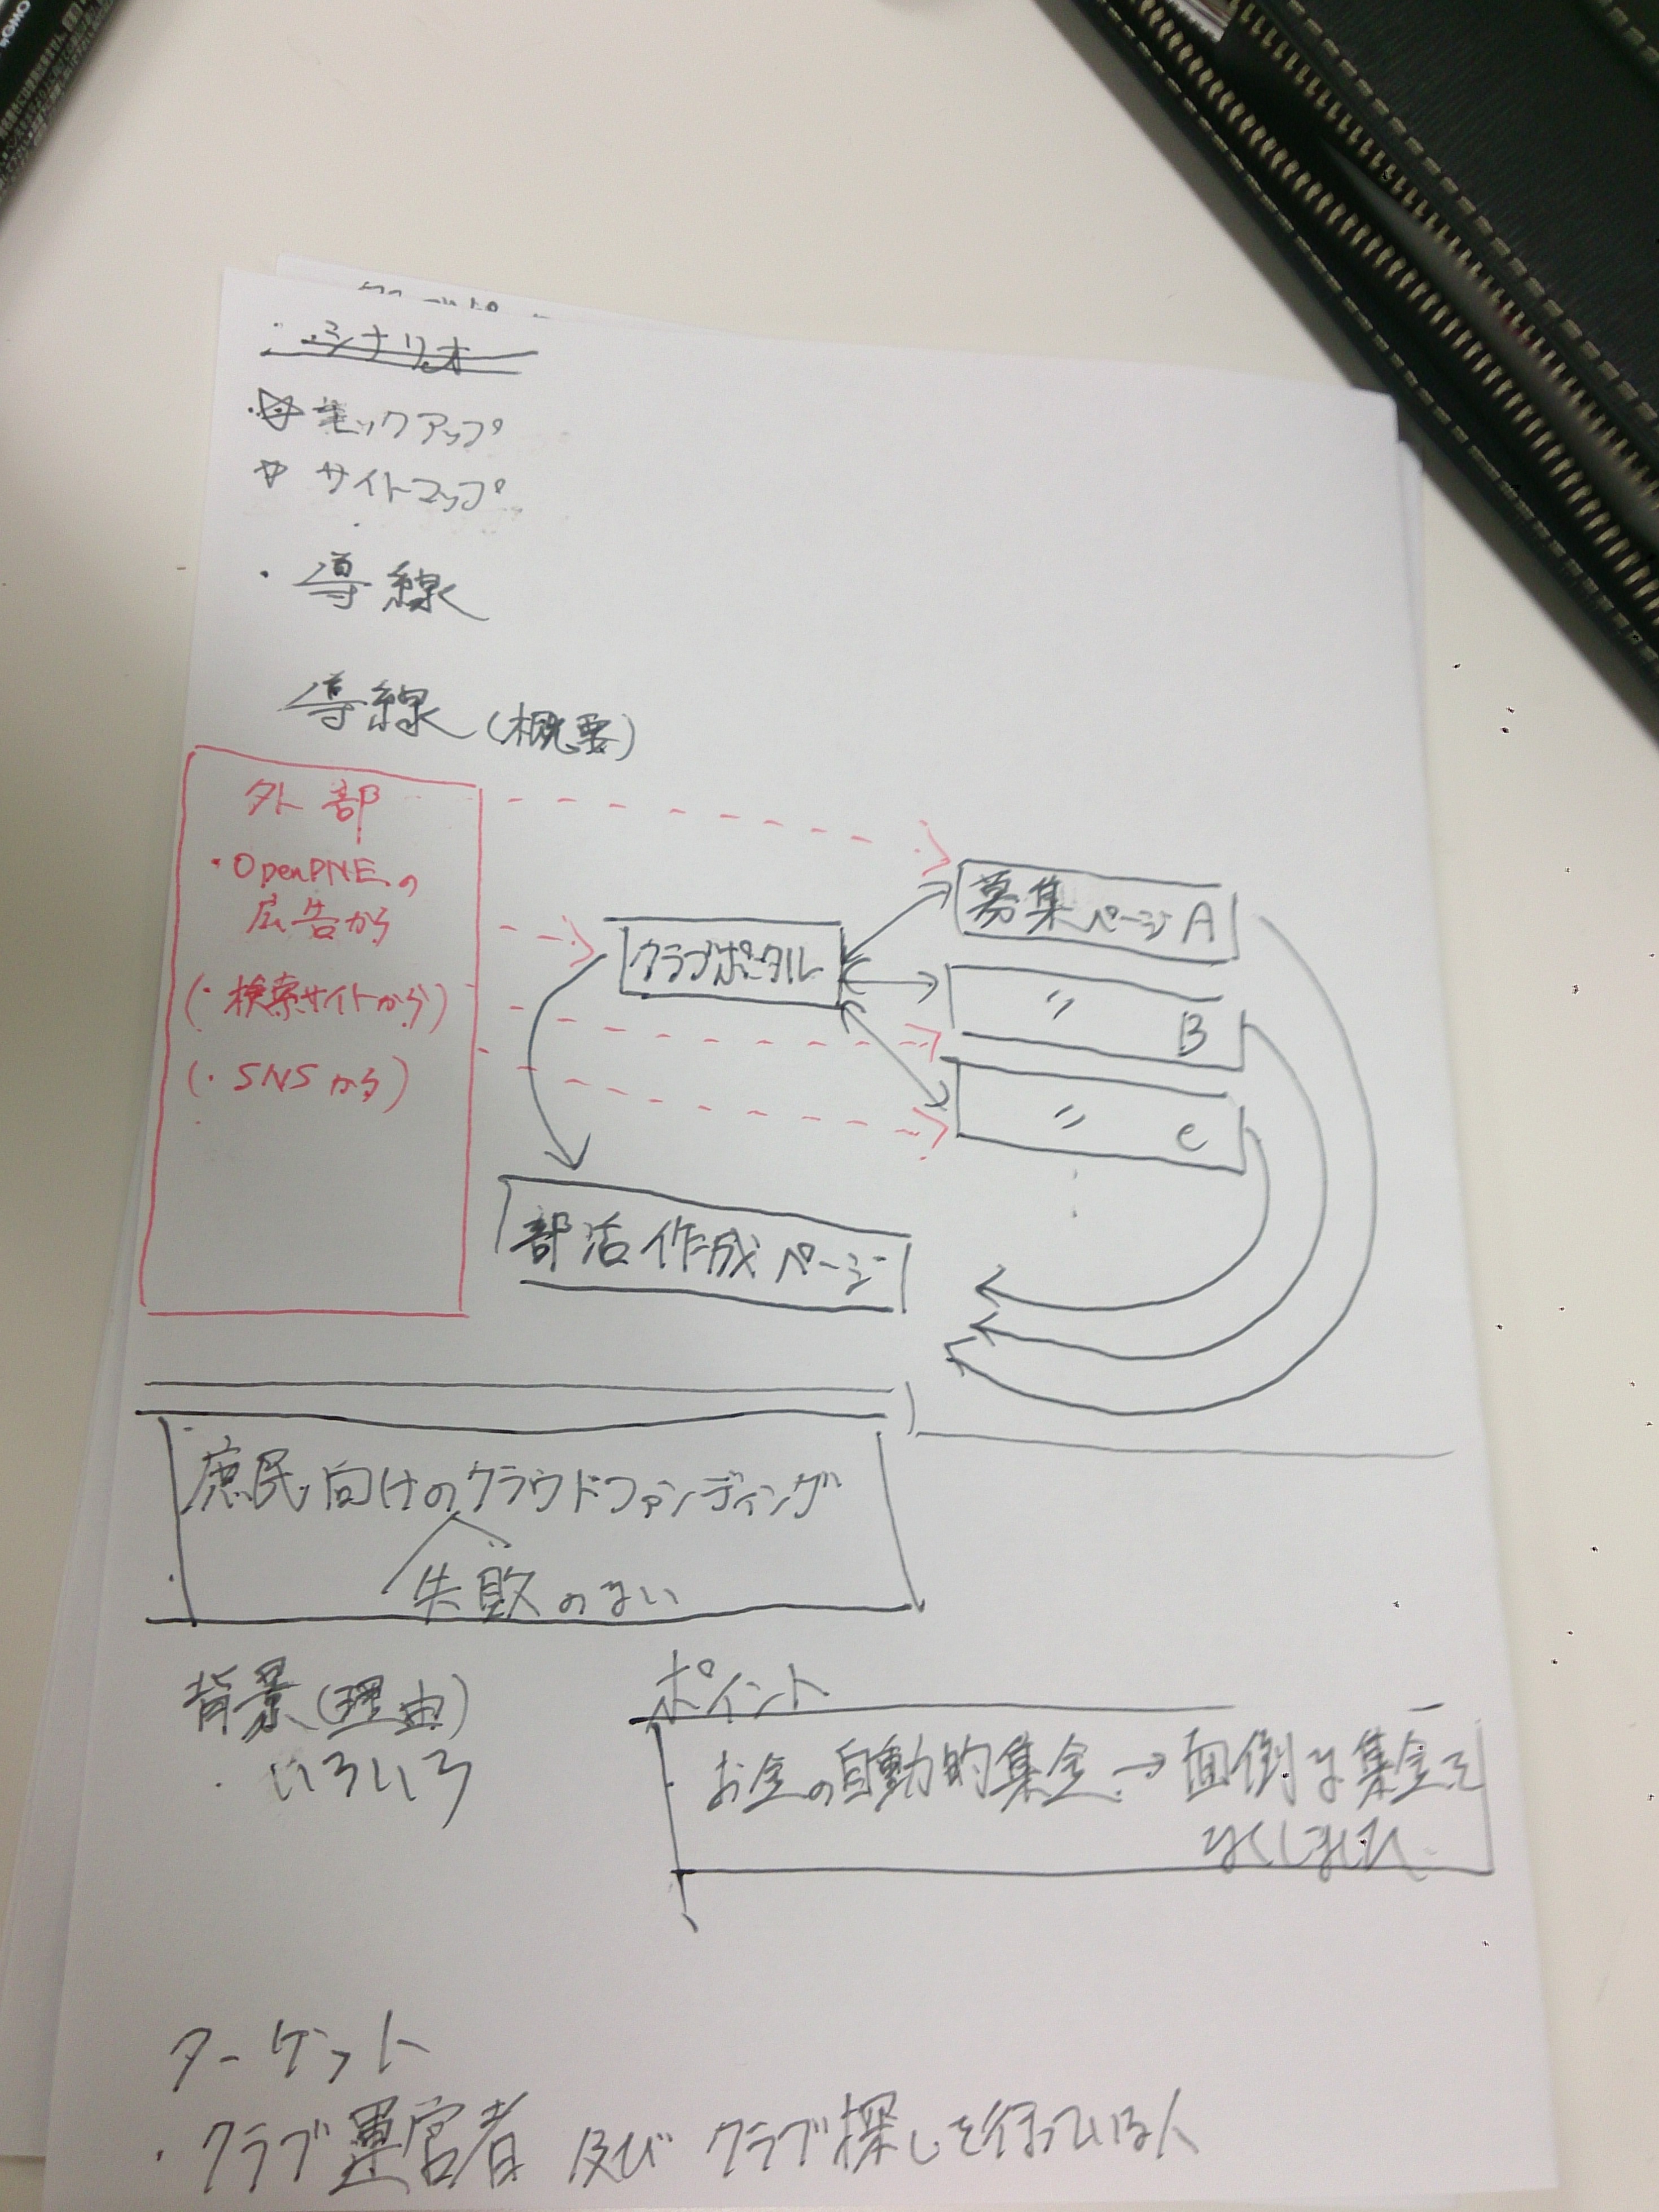 ・シナリオ
・モックアップ
サイトマップ
・導線
導線(概要)
外部
・OpenPNEの
広告から
(・検索サイトから)
(・SNSから)
クラブポータル
募集ページA
〃 B
〃 C
部活作成ページ
庶民向けのクラウドファンディング
失敗のない
背景(理由)
・いろいろ
ポイント
・お金の自動的集金→面倒な集金を
なくしました
ターゲット
・クラブ運営者 及び クラブ探しを行っている人